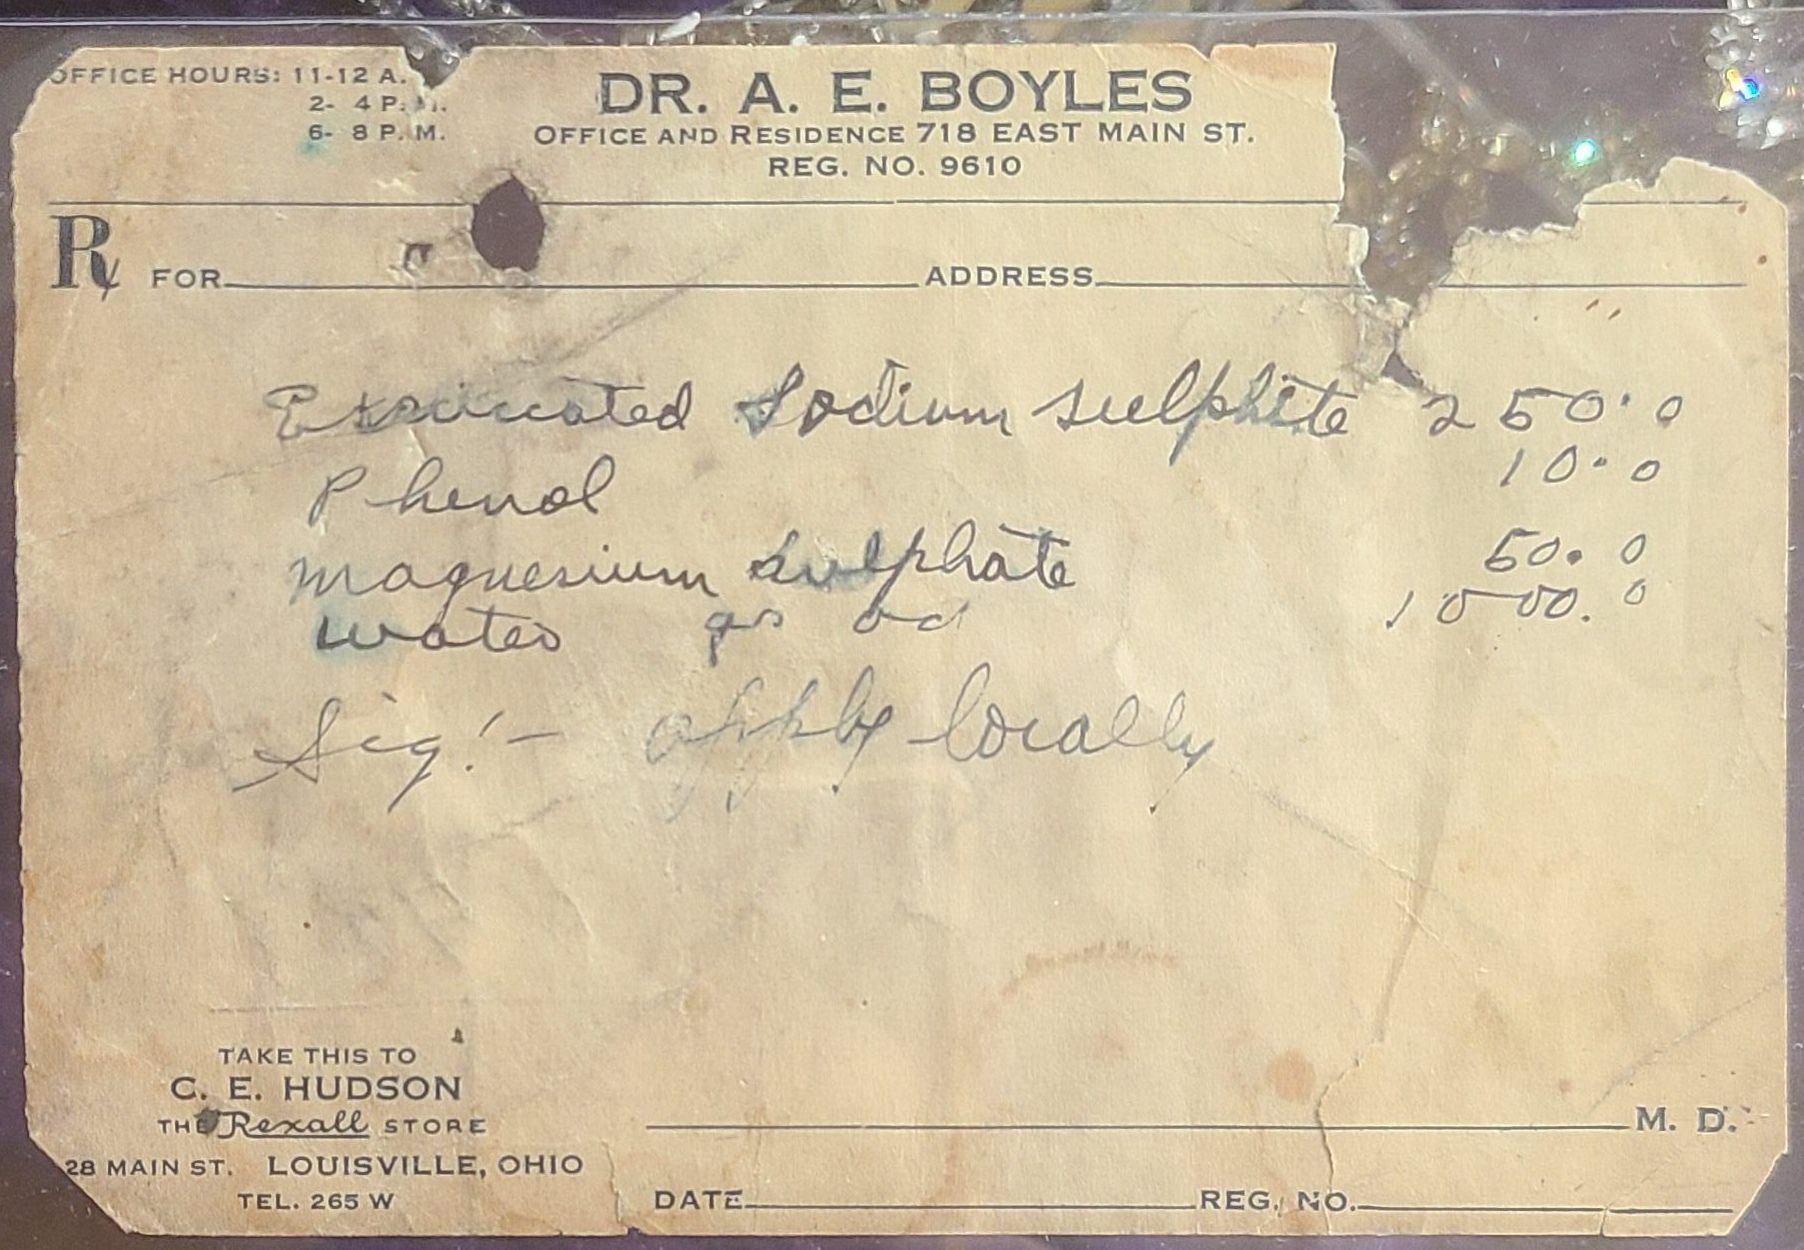 OFFICE HOURS: 11-12 A.
2- 4 P. M.
6- 8 P. M.
DR. A. E. BOYLES
OFFICE AND RESIDENCE 718 EAST MAIN ST.
REG. NO. 9610
Rx FOR ADDRESS
Exsiccated Sodium sulphite 250.0
Phenol 10.0
Magnesium sulphate 50.0
Water qs ad 1000.0
Sig:- apply locally
TAKE THIS TO
C. E. HUDSON
THE Rexall STORE
28 MAIN ST. LOUISVILLE, OHIO
TEL. 265 W
M. D.
DATE REG. NO.